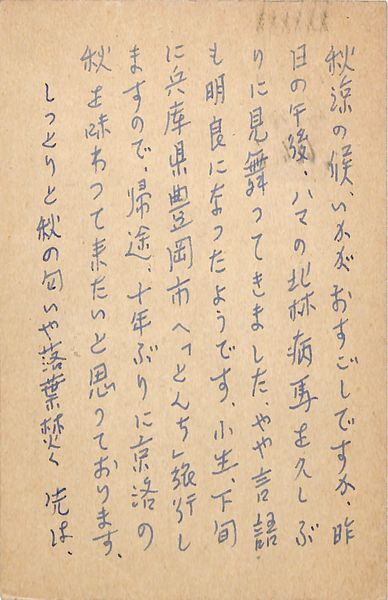 秋涼の候、いかがおすごしですか、昨
日の午後、ハマの北林病馬を久しぶ
りに見舞ってきました、やや言語
も明良になったようです、小生、下旬
に兵庫県豊岡市へ「とんち」旅行し
ますので、帰途、十年ぶりに京洛の
秋を味わって来たいと思っております、
しっとりと秋の匂いや落葉焚く 虎は、